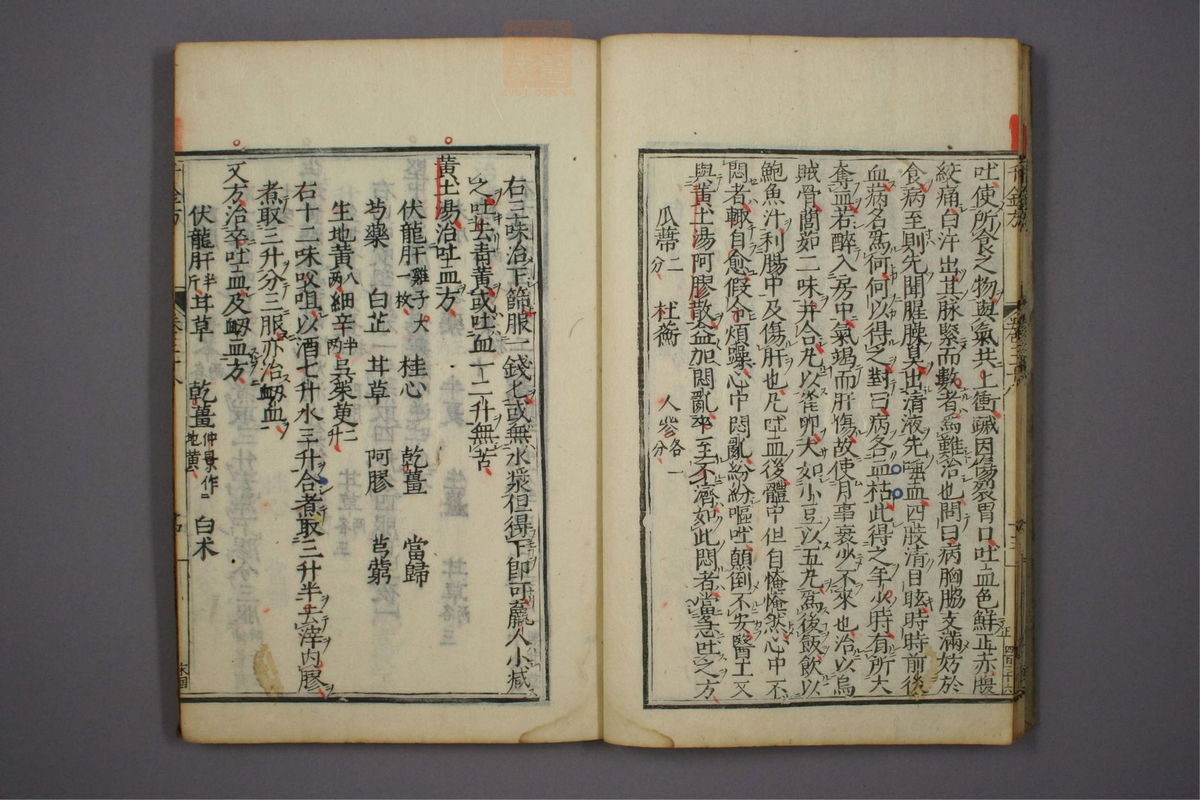 吐使所食之物與氣共上衝䠞因傷裂胃口吐血色鮮正赤腹
絞痛白汗出其脉緊而數者爲難治也問曰病胸脇支滿妨於
食病至則先聞腥臊臭出清液先唾血四肢清目眩時時前後
血病名爲何何以得之對曰病名血枯此得之年少時有所大
奪血若醉入房中氣竭而肝傷故使月事衰少不來也治以烏
賊骨藘茹二味并合丸以雀卵大如小豆以五丸爲後飯飲以
鮑魚汁利腸中及傷肝也凡吐血後體中但自惓惓然心中不
悶者輒自愈假令煩躁心中悶亂紛紛嘔吐顛倒不安醫工又
與黃土湯阿膠散益加悶亂卒至不濟如此悶者當急吐之方
瓜蔕二分 杜蘅 人參各一分
右三味治下篩服一錢匕或無水漿但得下即可羸人小減
之吐去青黃或吐血一二升無苦
黃土湯治吐血方
伏龍肝雞子大一枚 桂心 乾薑 當歸
芍藥 白芷 甘草 阿膠 芎藭
生地黃八兩 細辛半兩 吳茱萸二升
右十二味㕮咀以酒七升水三升合煮取三升半去滓內膠
煮取三升分三服亦治衂血
又方治卒吐血及衂血方
伏龍肝半斤 甘草 乾薑仲景作地黃 白术